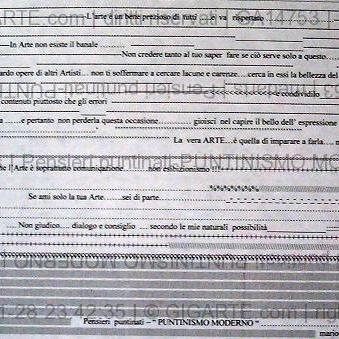 GIGARTE.com | diritti riservati | © A14753
L'arte è un bene prezioso di tutti e va rispettato
In Arte non esiste il banale
Non credere tanto al tuo saper fare se ciò serve solo a questo
ardo opere di altri Artisti... non ti soffermare a cercare lacune e carenze....cerca in essi la bellezza del
<<<<<<<<<condividilo
contenuti piuttosto che gli errori
a ......e pertanto non perderla questa occasione............ gioisci nel capire il bello dell' espressione
La vera ARTE....è quella di imparare a farla....
Pensieri puntinati PUNTINISMO MO
che l'Arte è soprattutto comunicazione..........non esibizionismo !!!
%%%%%%%%
Se ami solo la tua Arte.......sei di parte
Non giudico.... dialogo e consiglio .... secondo le mie naturali possibilità
1-28 23:42:35 | © GIGARTE.com |
Pensieri puntinati – " PUNTINISMO MODERNO "
mario